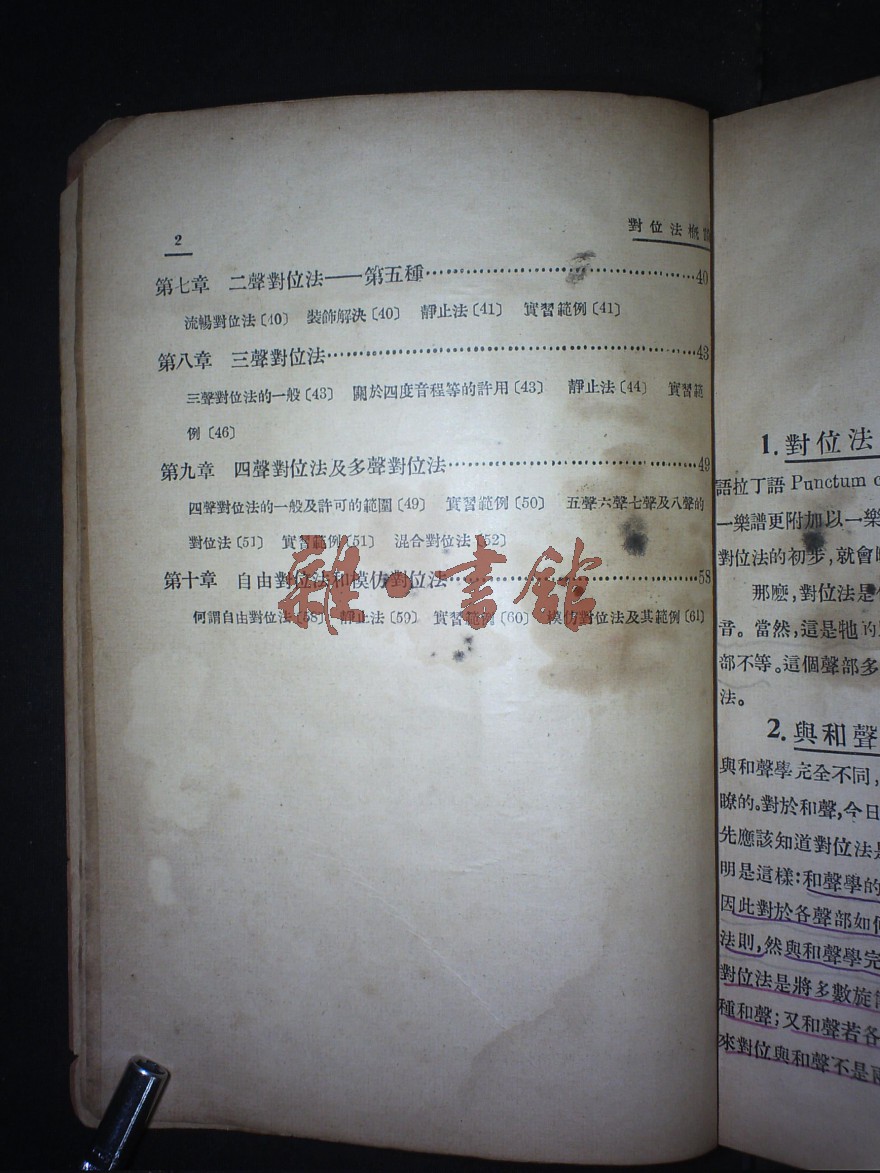 2
對位法概
第七章 二聲對位法——第五種……40
流暢對位法〔40〕 裝飾解決〔40〕 靜止法〔41〕 實習範例〔41〕
第八章 三聲對位法……43
三聲對位法的一般〔43〕 關於四度音程等的許用〔43〕 靜止法〔44〕 實習範
例〔46〕
第九章 四聲對位法及多聲對位法……49
四聲對位法的一般及許可的範圍〔49〕 實習範例〔50〕 五聲六聲七聲及八聲的
對位法〔51〕 實習範例〔51〕 混合對位法〔52〕
第十章 自由對位法和模仿對位法……58
何謂自由對位法〔58〕 靜止法〔59〕 實習範例〔60〕 模仿對位法及其範例〔61〕
雜·書館
1. 對位法
語拉丁語 Punctum
一樂譜更附加以一樂
對位法的初步,就會
那麽,對位法是
音。當然,這是牠的
部不等。這個聲部多
法。
2. 與和聲
與和聲學完全不同,
瞭的。對於和聲,今日
先應該知道對位法是
明是這樣:和聲學的
因此對於各聲部如何
法則,然與和聲學完
對位法是將多數旋
種和聲;又和聲若各
來對位與和聲不是兩